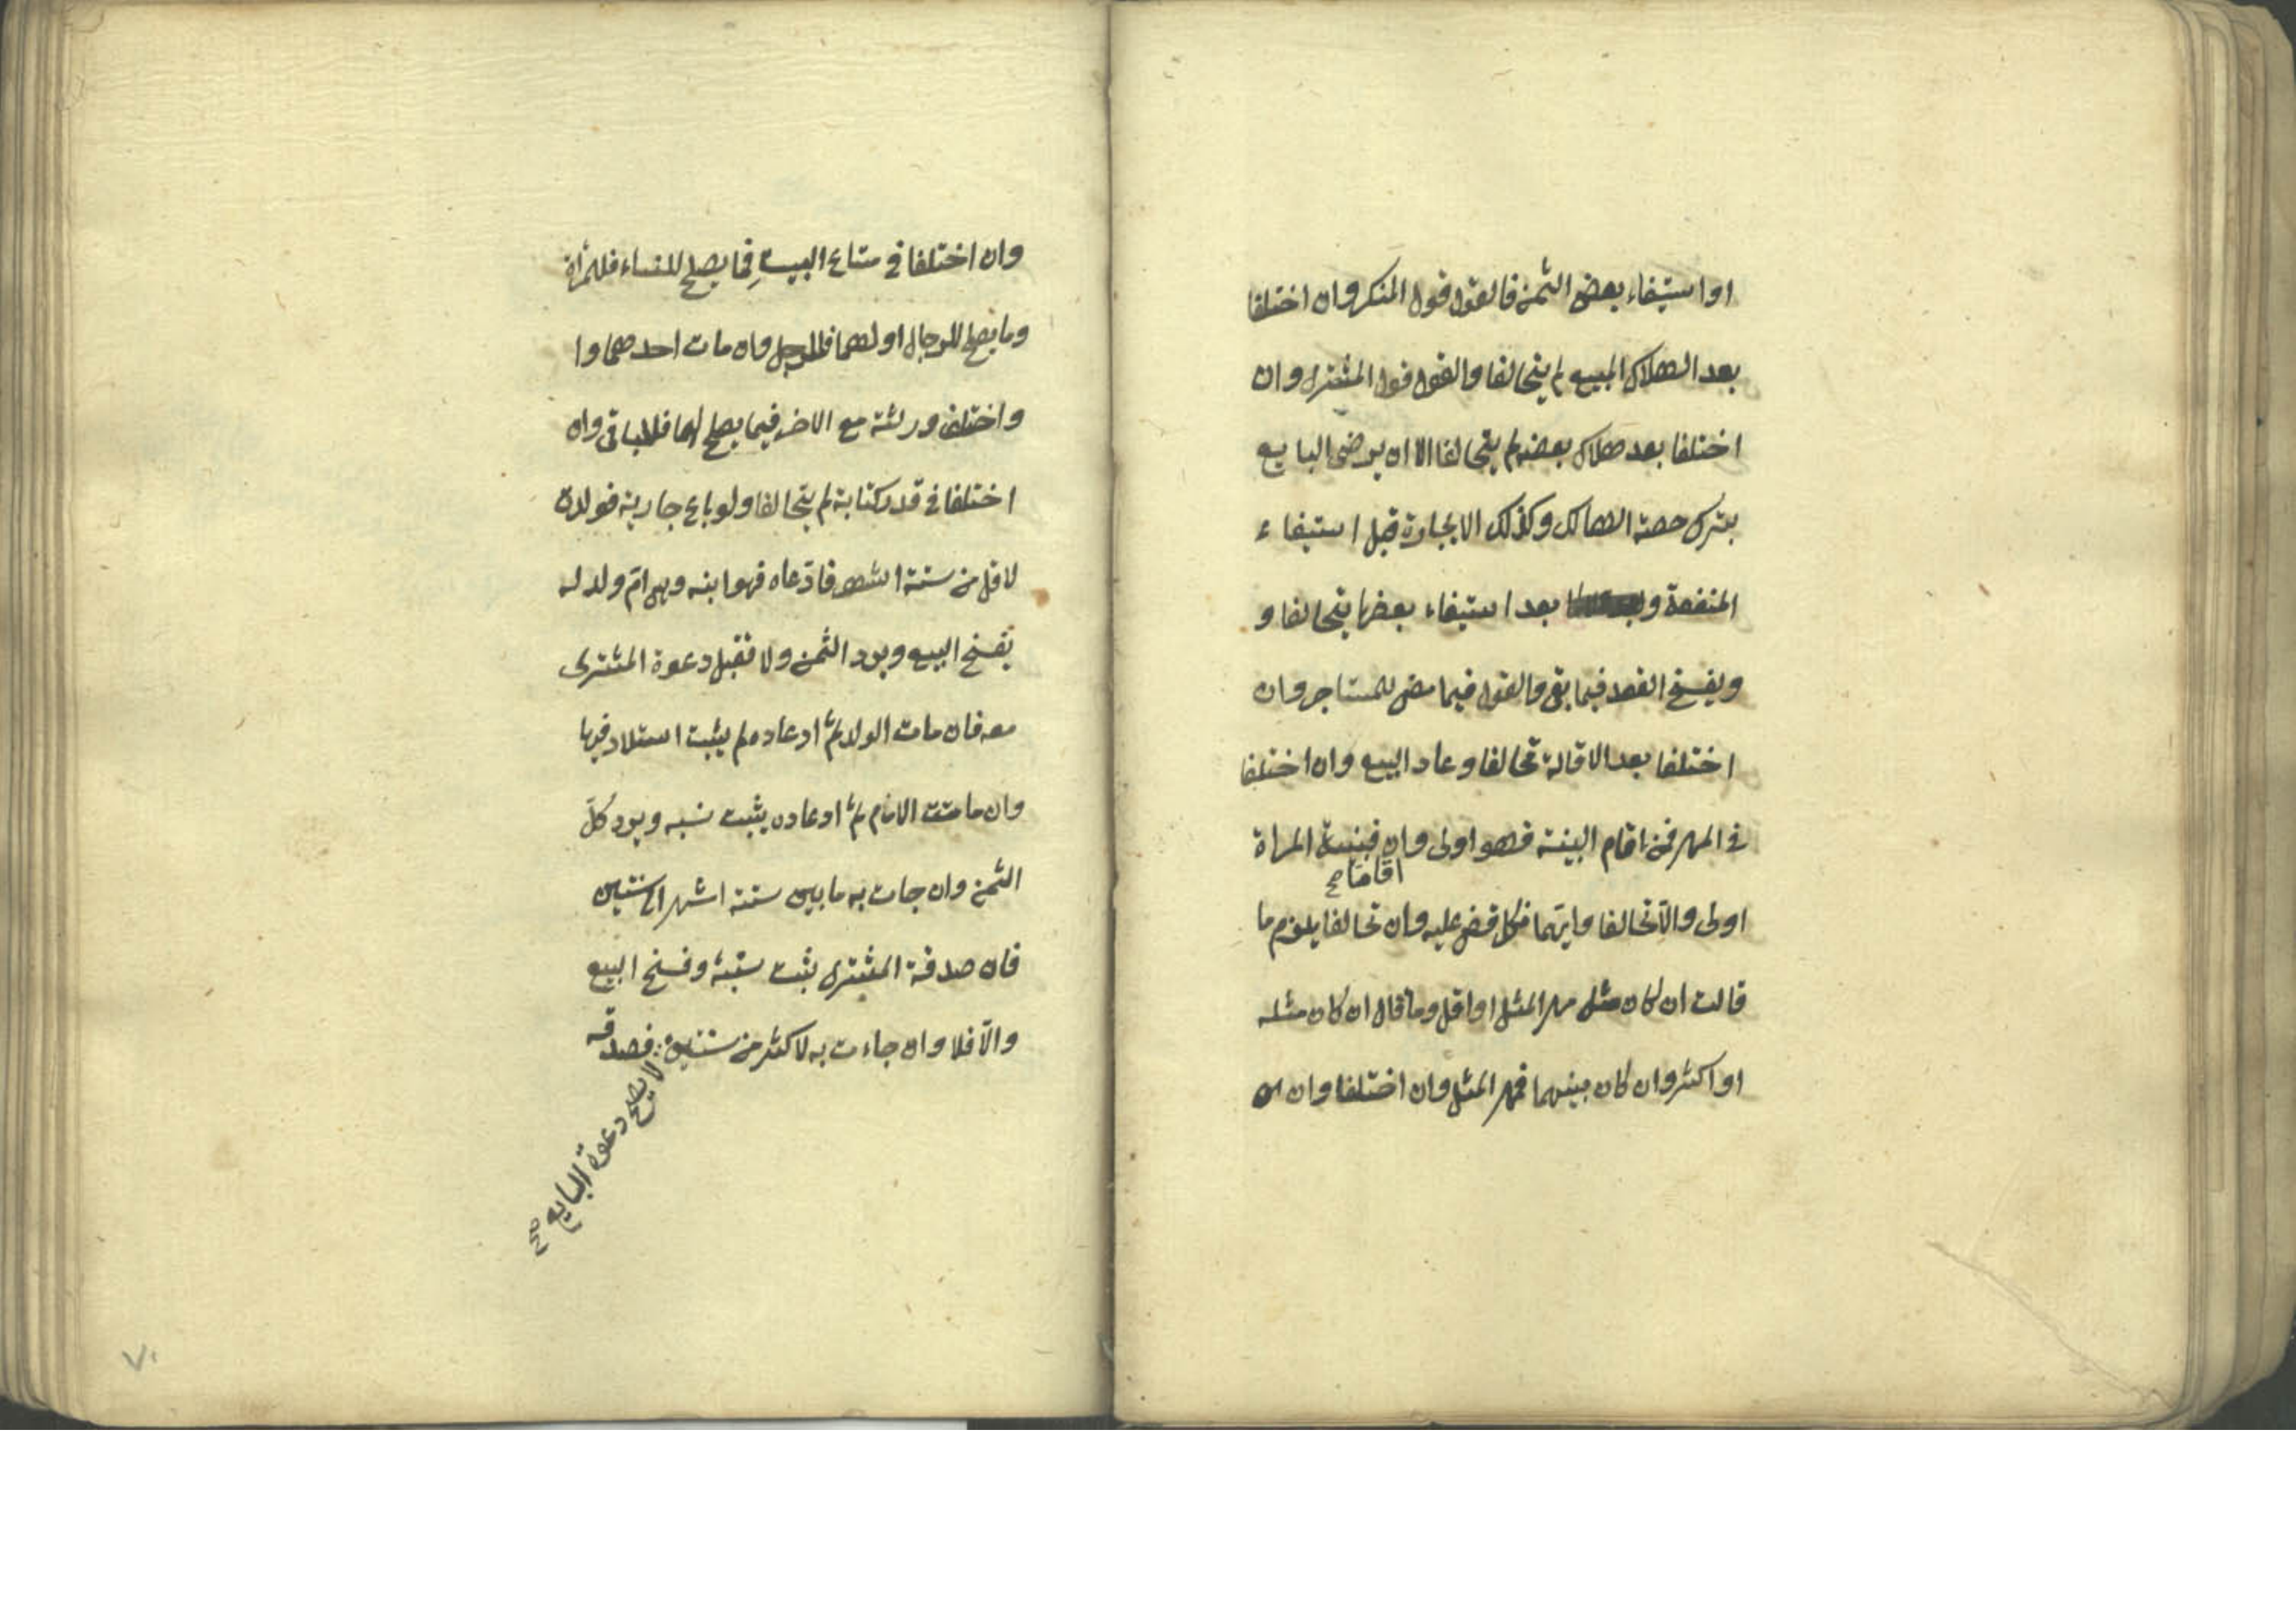 او استيفاء بعض الثمن فالقول قول المنكر وان اختلفا
بعد الهلاك المبيع لم يتحالفا والقول قول المشترى وان
اختلفا بعد هلاك بعضه لم يتحالفا الا ان يرضى البايع
بترك حصة الهالك وكذلك الاجارة قبل استيفاء
المنفعة و بعد استيفاء بعضها يتحالفا و
ويفسخ العقد فيما بقى والقول فيما مضى للمستاجر وان
اختلفا بعد الاقالة تحالفا وعاد البيع وان اختلفا
فى المهر فمن اقام البينة فهو اولى وان فبينة المراة
اقاما صح
اولى والّا تحالفا وايّهما نكل قضى عليه وان تحالفا يلزم ما
قالت ان كان مثل مهر المثل او اقل وما قال ان كان مثله
او اكثر وان كان بينهما فمهر المثل وان اختلفا وان
وان اختلفا فى متاع البيت فما يصلح للنساء فللمرأة
وما يصلح للرجال او لهما فللرجل وان مات احدهما وا
واختلف ورثته مع الاخر فيما يصلح لهما فللباقى وان
اختلفا فى قدر كتابة لم يتحالفا ولو باع جارية فولدت
لاقل من ستة اشهر فادّعاه فهو ابنه وهى امّ ولد له
يفسخ البيع ويرد الثمن ولا تقبل دعوة المشترى
معه فان مات الولد ثم ادعاه لم يثبت استلاد فيها
وان ماتت الام ثم ادعاه يثبت نسبه ويرد كلّ
الثمن وان جات به ما بين ستة اشهر الى سنتين
فان صدقة المشترى يثبت نسبة وفسخ البيع
والّا فلا وان جاءت به لاكثر من سنتين فصدقه
لا يصح دعوة البايع صح
٧٠